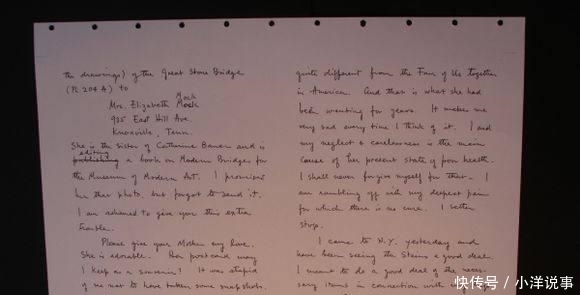 the drawings) of the Great Stone Bridge
(R 204 A) to
Mock
Mrs. Elizabeth Mock
925 East Hill Ave.
Knoxville, Tenn.
She is the sister of Catharine Bauer and is
editing
publishing a book on Modern Bridges for
the Museum of Modern Art. I promised
her that photo, but forgot to send it.
I am ashamed to give you this extra
trouble.
Please give your Mother my love.
She is adorable. Her postcard may
I keep as a souvenir? It was stupid
of me not to have taken some snapshots.
quite different from the Four of Us together
in America. And that is what she had
been wanting for years. It makes me
very sad every time I think of it. I and
my neglect & carelessness is the main
cause of her present state of poor health.
I shall never forgive myself for that. I
am rambling off with my deepest pain
for which there is no cure. I better
stop.
I came to N.Y. yesterday and
have been seeing the Steins a good deal.
I meant to do a good deal of the neces-
sary items in connection with
快传号 / 小洋说事